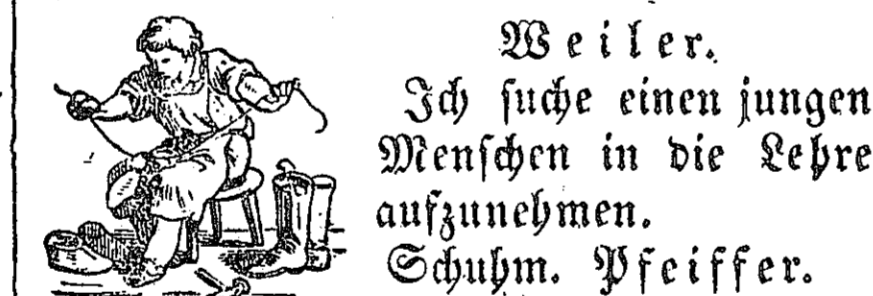 Weiler.
Ich suche einen jungen
Menschen in die Lehre
aufzunehmen.
Schuhm. Pfeiffer.